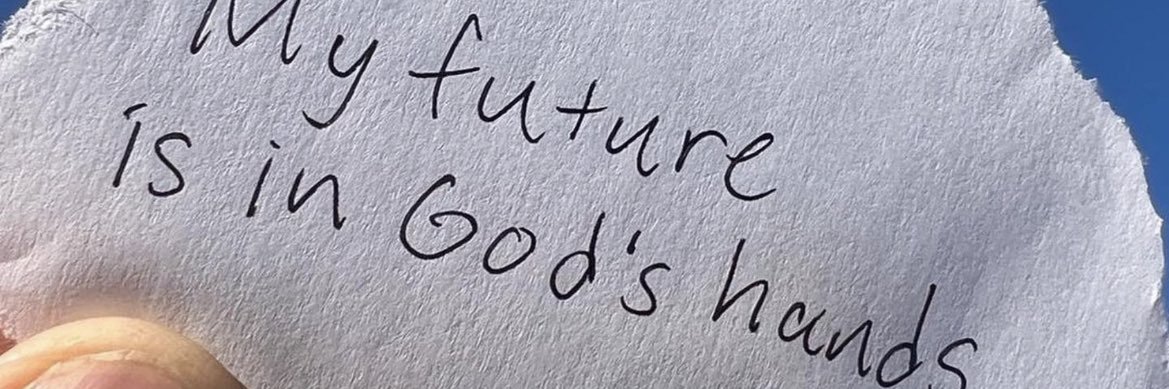 My future
is in God's hands